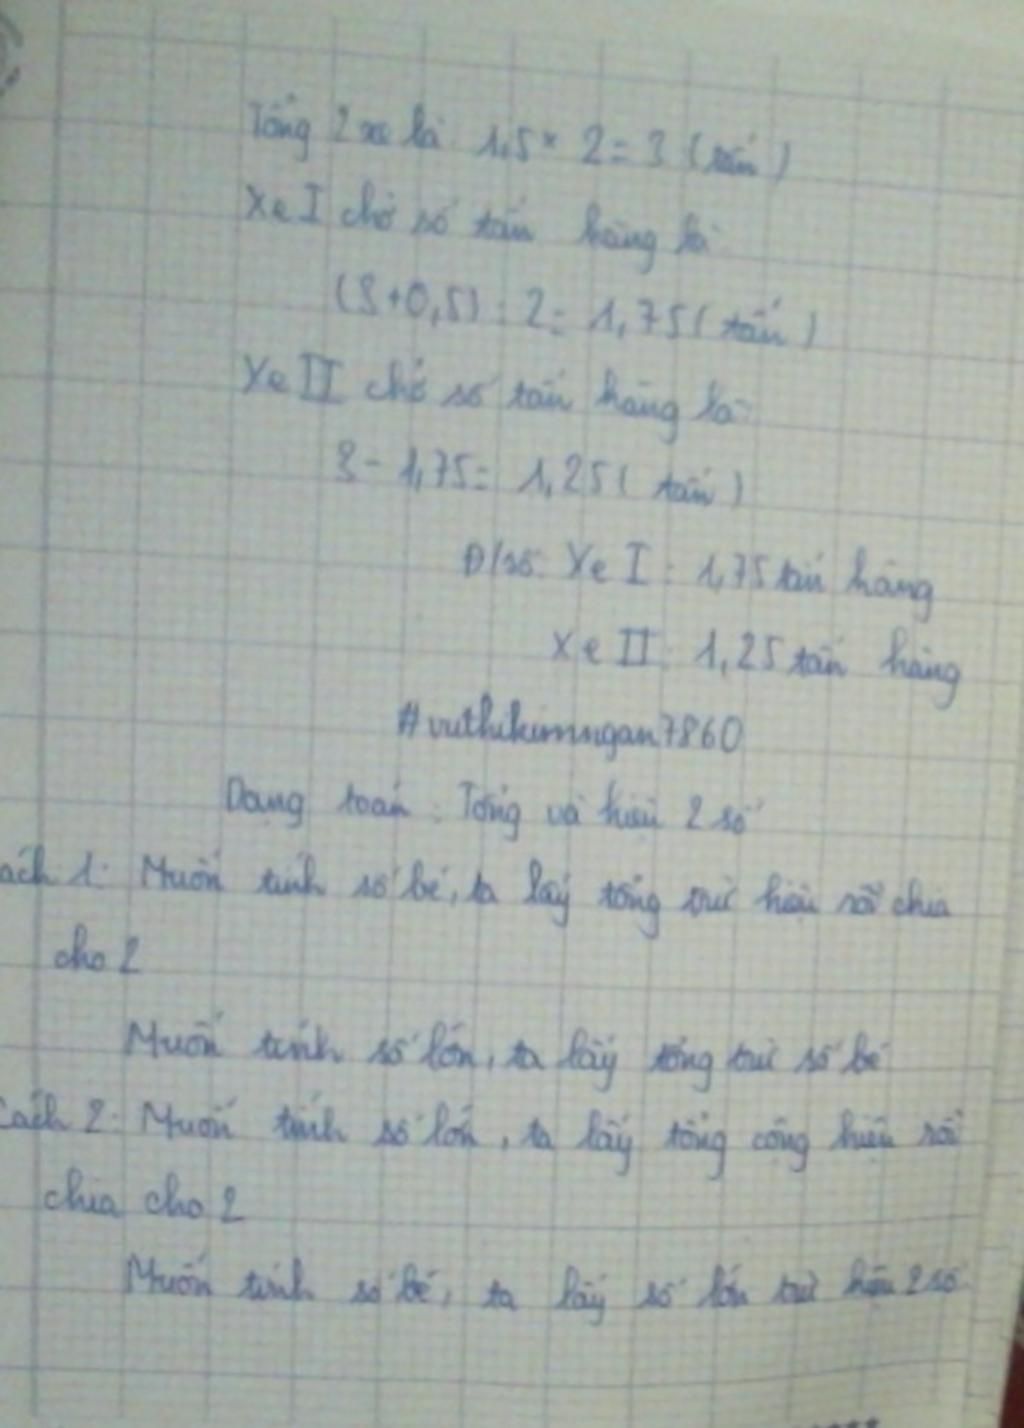 Tổng 2 xe là 1,5 × 2 = 3 (tấn)
Xe I chở số tấn hàng là:
(3+0,5) : 2 = 1,75 (tấn)
Xe II chở số tấn hàng là:
3 - 1,75 = 1,25 (tấn)
Đ/số: Xe I: 1,75 tấn hàng
Xe II: 1,25 tấn hàng
#vuthikimngan7860
Dạng toán: Tổng và hiệu 2 số
ách 1: Muốn tính số bé, ta lấy tổng trừ hiệu rồi chia
cho 2
Muốn tính số lớn, ta lấy tổng trừ số bé
Cách 2: Muốn tính số lớn, ta lấy tổng cộng hiệu rồi
chia cho 2
Muốn tính số bé, ta lấy số lớn trừ hiệu 2 số